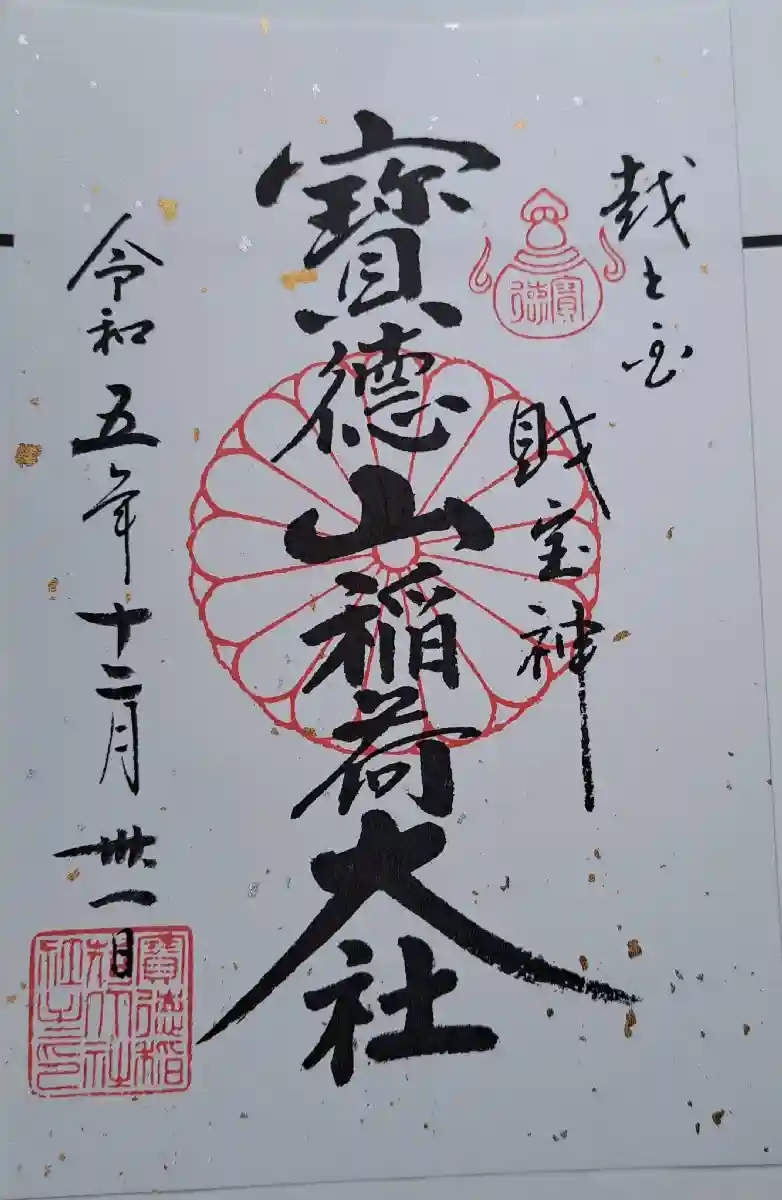 越之宝
財宝神
寶德
寶德山稲荷大社
令和五年十二月卅一日
寶德稲
荷大社